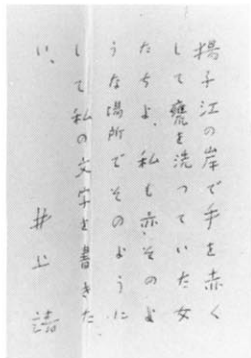 揚子江の岸で手を赤く
して甕を洗っていた女
たちよ、私も亦そのよ
うな場所でそのように
して私の文字を書きた
い。
井上 靖